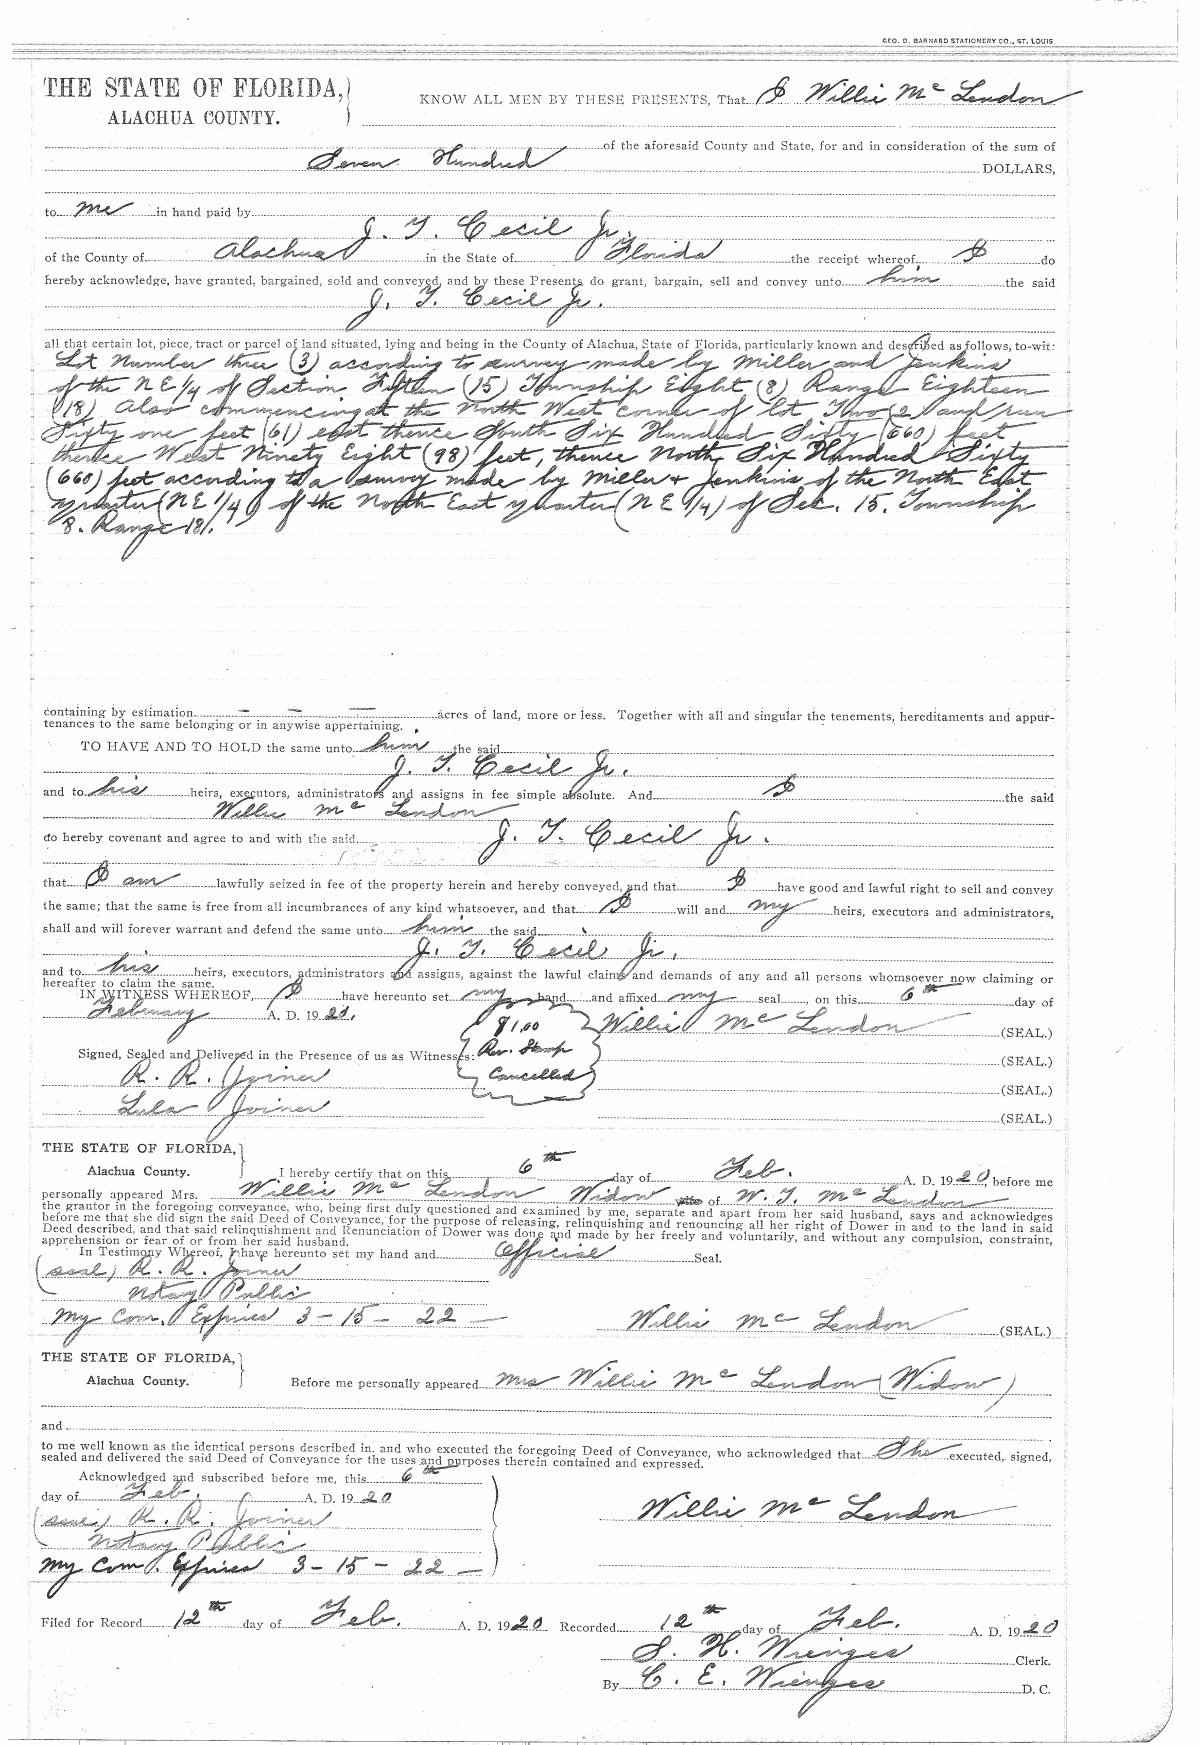 GEO. D. BARNARD STATIONERY CO., ST. LOUIS
THE STATE OF FLORIDA,
ALACHUA COUNTY.
KNOW ALL MEN BY THESE PRESENTS, That I Willie Mc Lendon
of the aforesaid County and State, for and in consideration of the sum of
Seven Hundred DOLLARS,
to me in hand paid by
J. T. Cecil Jr.
of the County of Alachua in the State of Florida the receipt whereof I do
hereby acknowledge, have granted, bargained, sold and conveyed, and by these Presents do grant, bargain, sell and convey unto him the said
J. T. Cecil Jr.
all that certain lot, piece, tract or parcel of land situated, lying and being in the County of Alachua, State of Florida, particularly known and described as follows, to-wit:
Lot Number three (3) according to survey made by Miller and Jenkins
of the NE 1/4 of Section Fifteen (15) Township Eight (8) Range Eighteen
(18) Also commencing at the North West corner of lot Two (2) and run
Sixty one feet (61) east thence South Six Hundred Sixty (660) feet
thence West Ninety Eight (98) feet, thence North Six Hundred Sixty
(660) feet according to a survey made by Miller & Jenkins of the North East
quarter (NE 1/4) of the North East quarter (NE 1/4) of Sec. 15. Township
8. Range 18.
containing by estimation — — — acres of land, more or less. Together with all and singular the tenements, hereditaments and appur-
tenances to the same belonging or in anywise appertaining.
TO HAVE AND TO HOLD the same unto him the said
J. T. Cecil Jr.
and to his heirs, executors, administrators and assigns in fee simple absolute. And I the said
Willie Mc Lendon
do hereby covenant and agree to and with the said J. T. Cecil Jr.
that I am lawfully seized in fee of the property herein and hereby conveyed, and that I have good and lawful right to sell and convey
the same; that the same is free from all incumbrances of any kind whatsoever, and that I will and my heirs, executors and administrators,
shall and will forever warrant and defend the same unto him the said
J. T. Cecil Jr.
and to his heirs, executors, administrators and assigns, against the lawful claims and demands of any and all persons whomsoever now claiming or
hereafter to claim the same.
IN WITNESS WHEREOF, I have hereunto set my hand and affixed my seal, on this 6th day of
February A. D. 1920.
$1.00
Rev. Stamp
Cancelled
Willie Mc Lendon (SEAL.)
Signed, Sealed and Delivered in the Presence of us as Witnesses:
(SEAL.)
R. R. Joiner (SEAL.)
Lula Joiner (SEAL.)
THE STATE OF FLORIDA,
Alachua County.
I hereby certify that on this 6th day of Feb. A. D. 1920 before me
personally appeared Mrs. Willie Mc Lendon Widow of W. T. Mc Lendon
the grantor in the foregoing conveyance, who, being first duly questioned and examined by me, separate and apart from her said husband, says and acknowledges
before me that she did sign the said Deed of Conveyance, for the purpose of releasing, relinquishing and renouncing all her right of Dower in and to the land in said
Deed described, and that said relinquishment and Renunciation of Dower was done and made by her freely and voluntarily, and without any compulsion, constraint,
apprehension or fear of or from her said husband.
In Testimony Whereof, I have hereunto set my hand and Official Seal.
(seal) R. R. Joiner
Notary Public
My Com. Expires 3 - 15 - 22 —
Willie Mc Lendon (SEAL.)
THE STATE OF FLORIDA,
Alachua County.
Before me personally appeared Mrs Willie Mc Lendon (Widow)
and
to me well known as the identical persons described in, and who executed the foregoing Deed of Conveyance, who acknowledged that She executed, signed,
sealed and delivered the said Deed of Conveyance for the uses and purposes therein contained and expressed.
Acknowledged and subscribed before me, this 6th
day of Feb. A. D. 1920
(seal) R. R. Joiner
Notary Public
My Com. Expires 3 - 15 - 22 —
Willie Mc Lendon
Filed for Record 12th day of Feb. A. D. 1920 Recorded 12th day of Feb. A. D. 1920
S. H. Wienges Clerk.
By C. E. Wienges D. C.